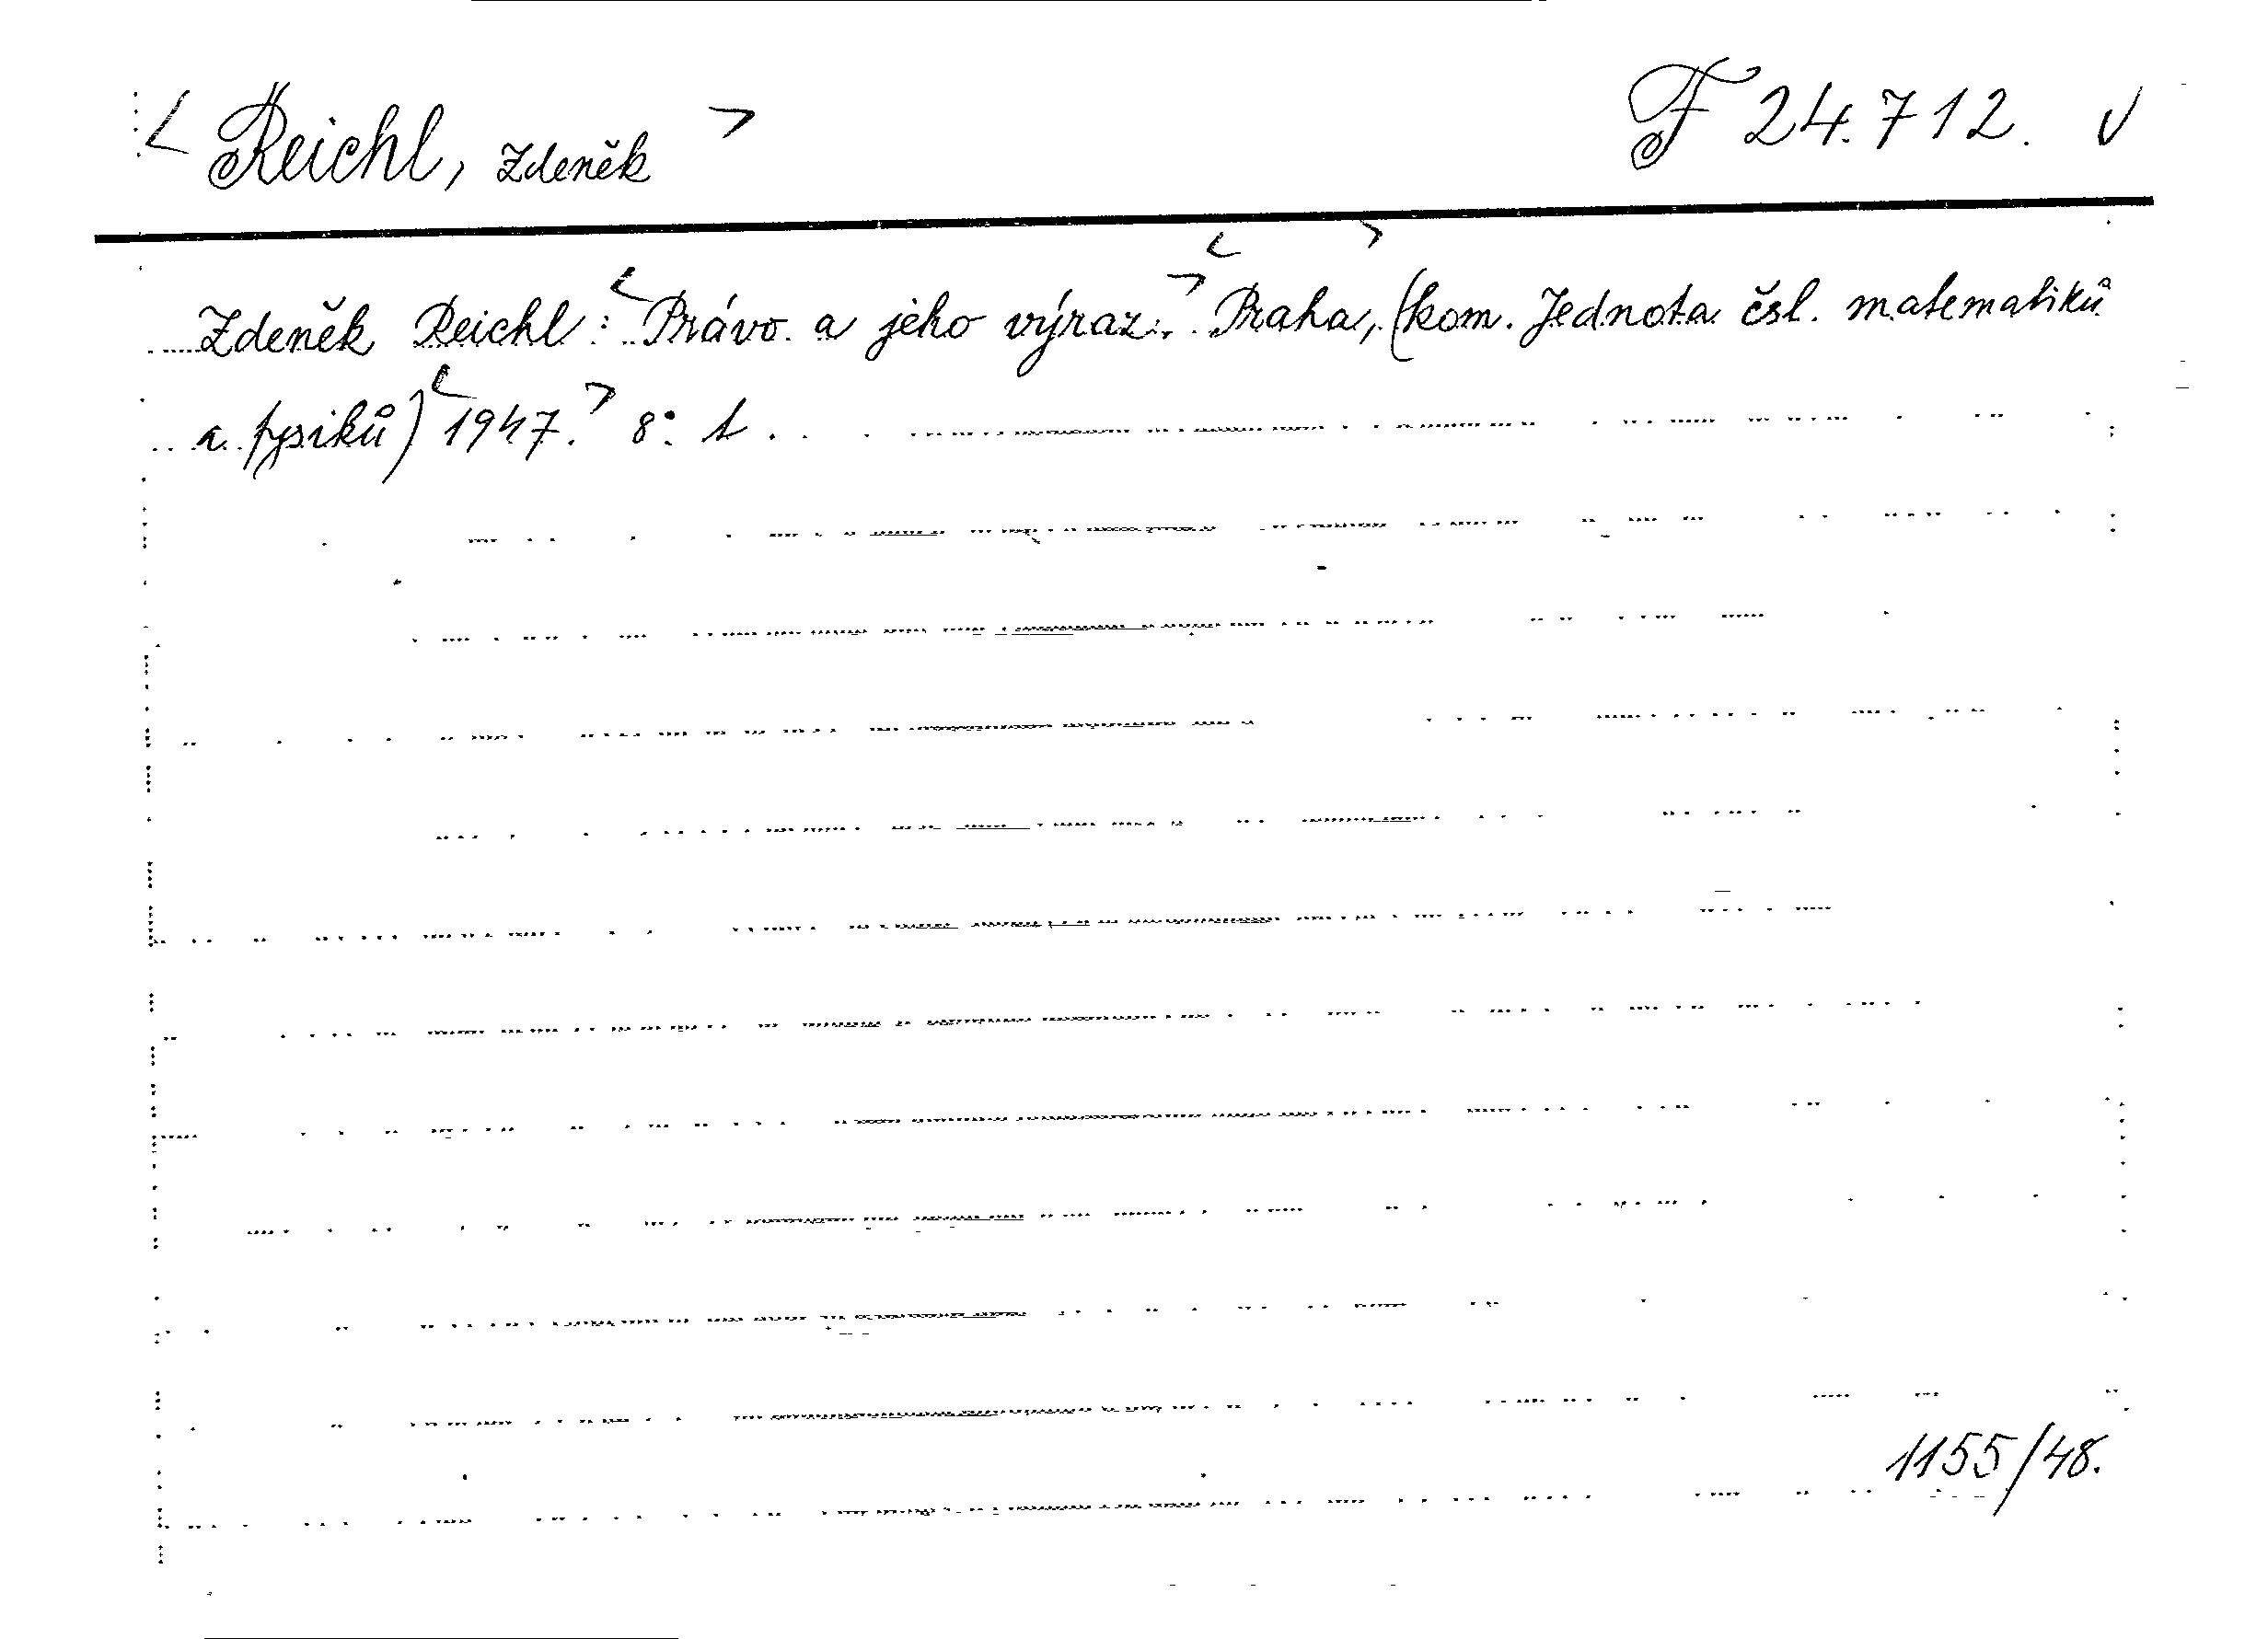 < Reichl, Zdeněk > F 24.712. √
Zdeněk Reichl: <Právo a jeho výraz.> <Praha,> (kom. Jednota čsl. matematiků
a fysiků) <1947.> 8°.
1155/48.